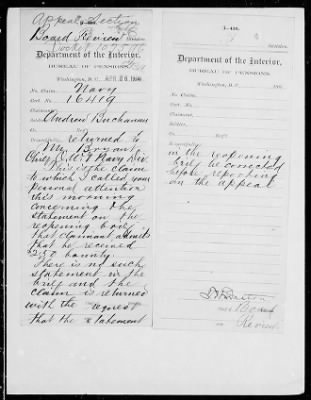 Appeal Section
Board Review
Docket
Department of the Interior,
BUREAU OF PENSIONS,
Washington, D. C., APR 26
No. Claim, Navy
Cert. No. 16419
Claimant, Andrew Buchanan
Soldier,
Respectfully returned to
Mr. Bryant
Chief Navy Div.
This is the claim
to which I called your
personal attention
this morning
concerning the
statement on the
reopening brief
that claimant admits
that he received
bounty.
There is no such
statement in the
brief and the
claim is returned
with the request
that the statement
Department of the Interior,
BUREAU OF PENSIONS,
Washington, D. C.,
No. Claim,
Cert. No.
Claimant,
Soldier,
Respectfully
in the reopening
brief be corrected
before reporting
on the appeal
Board
Review